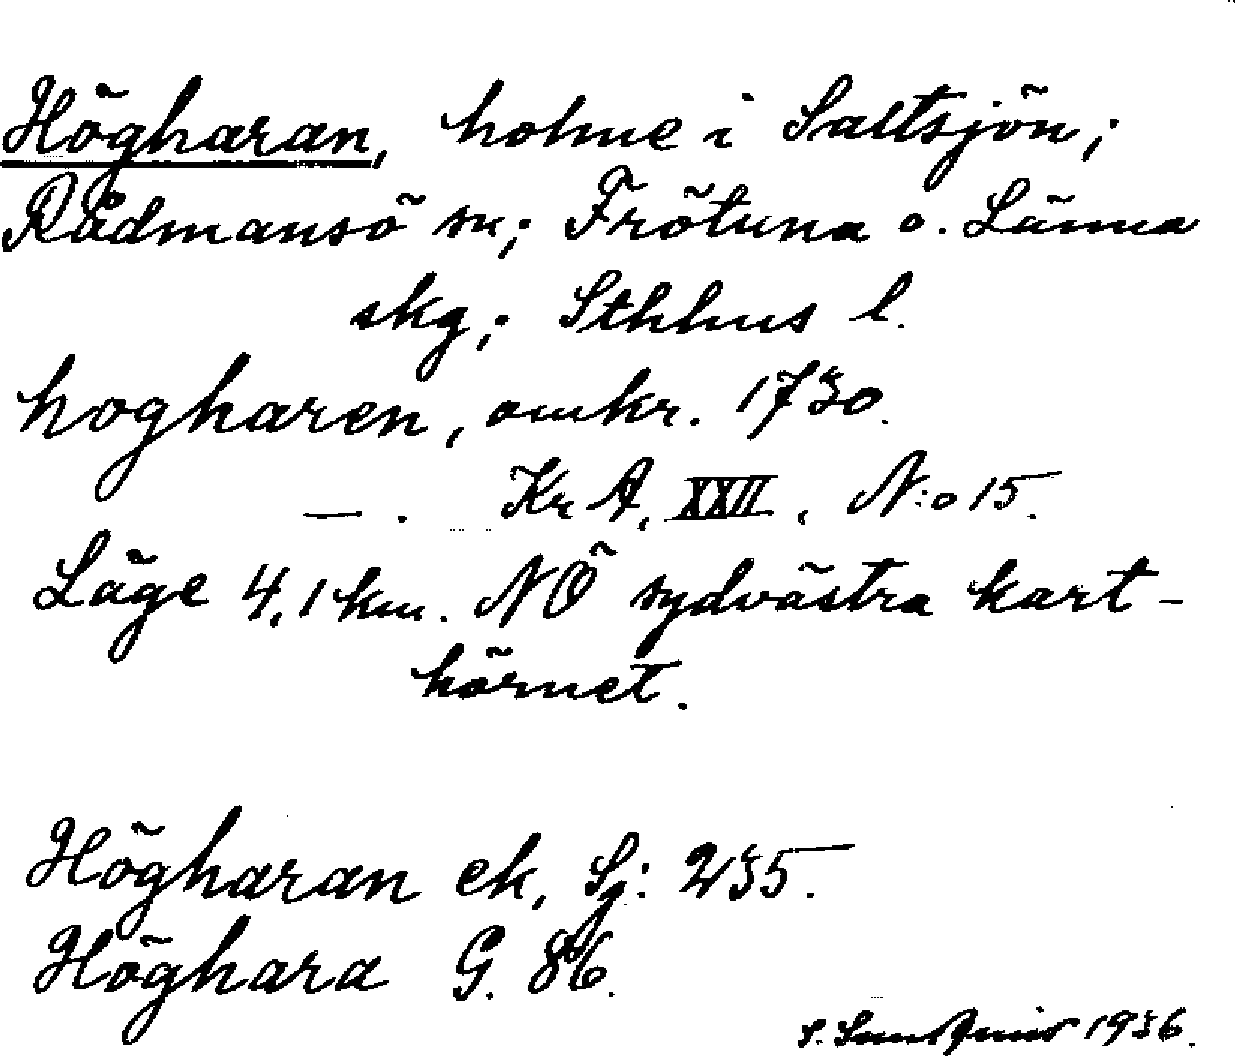 Högharan, holme i Saltsjön;
Rådmansö sn; Frötuna o. Länna
skg; Sthlms l.
hogharen, omkr. 1730.
— . Kr A, XXII, N:o 15.
Läge 4,1 km. NÖ sydvästra kart-
hörnet.
Högharan ek, Sj: 235.
Höghara G. 86.
S. 1936.